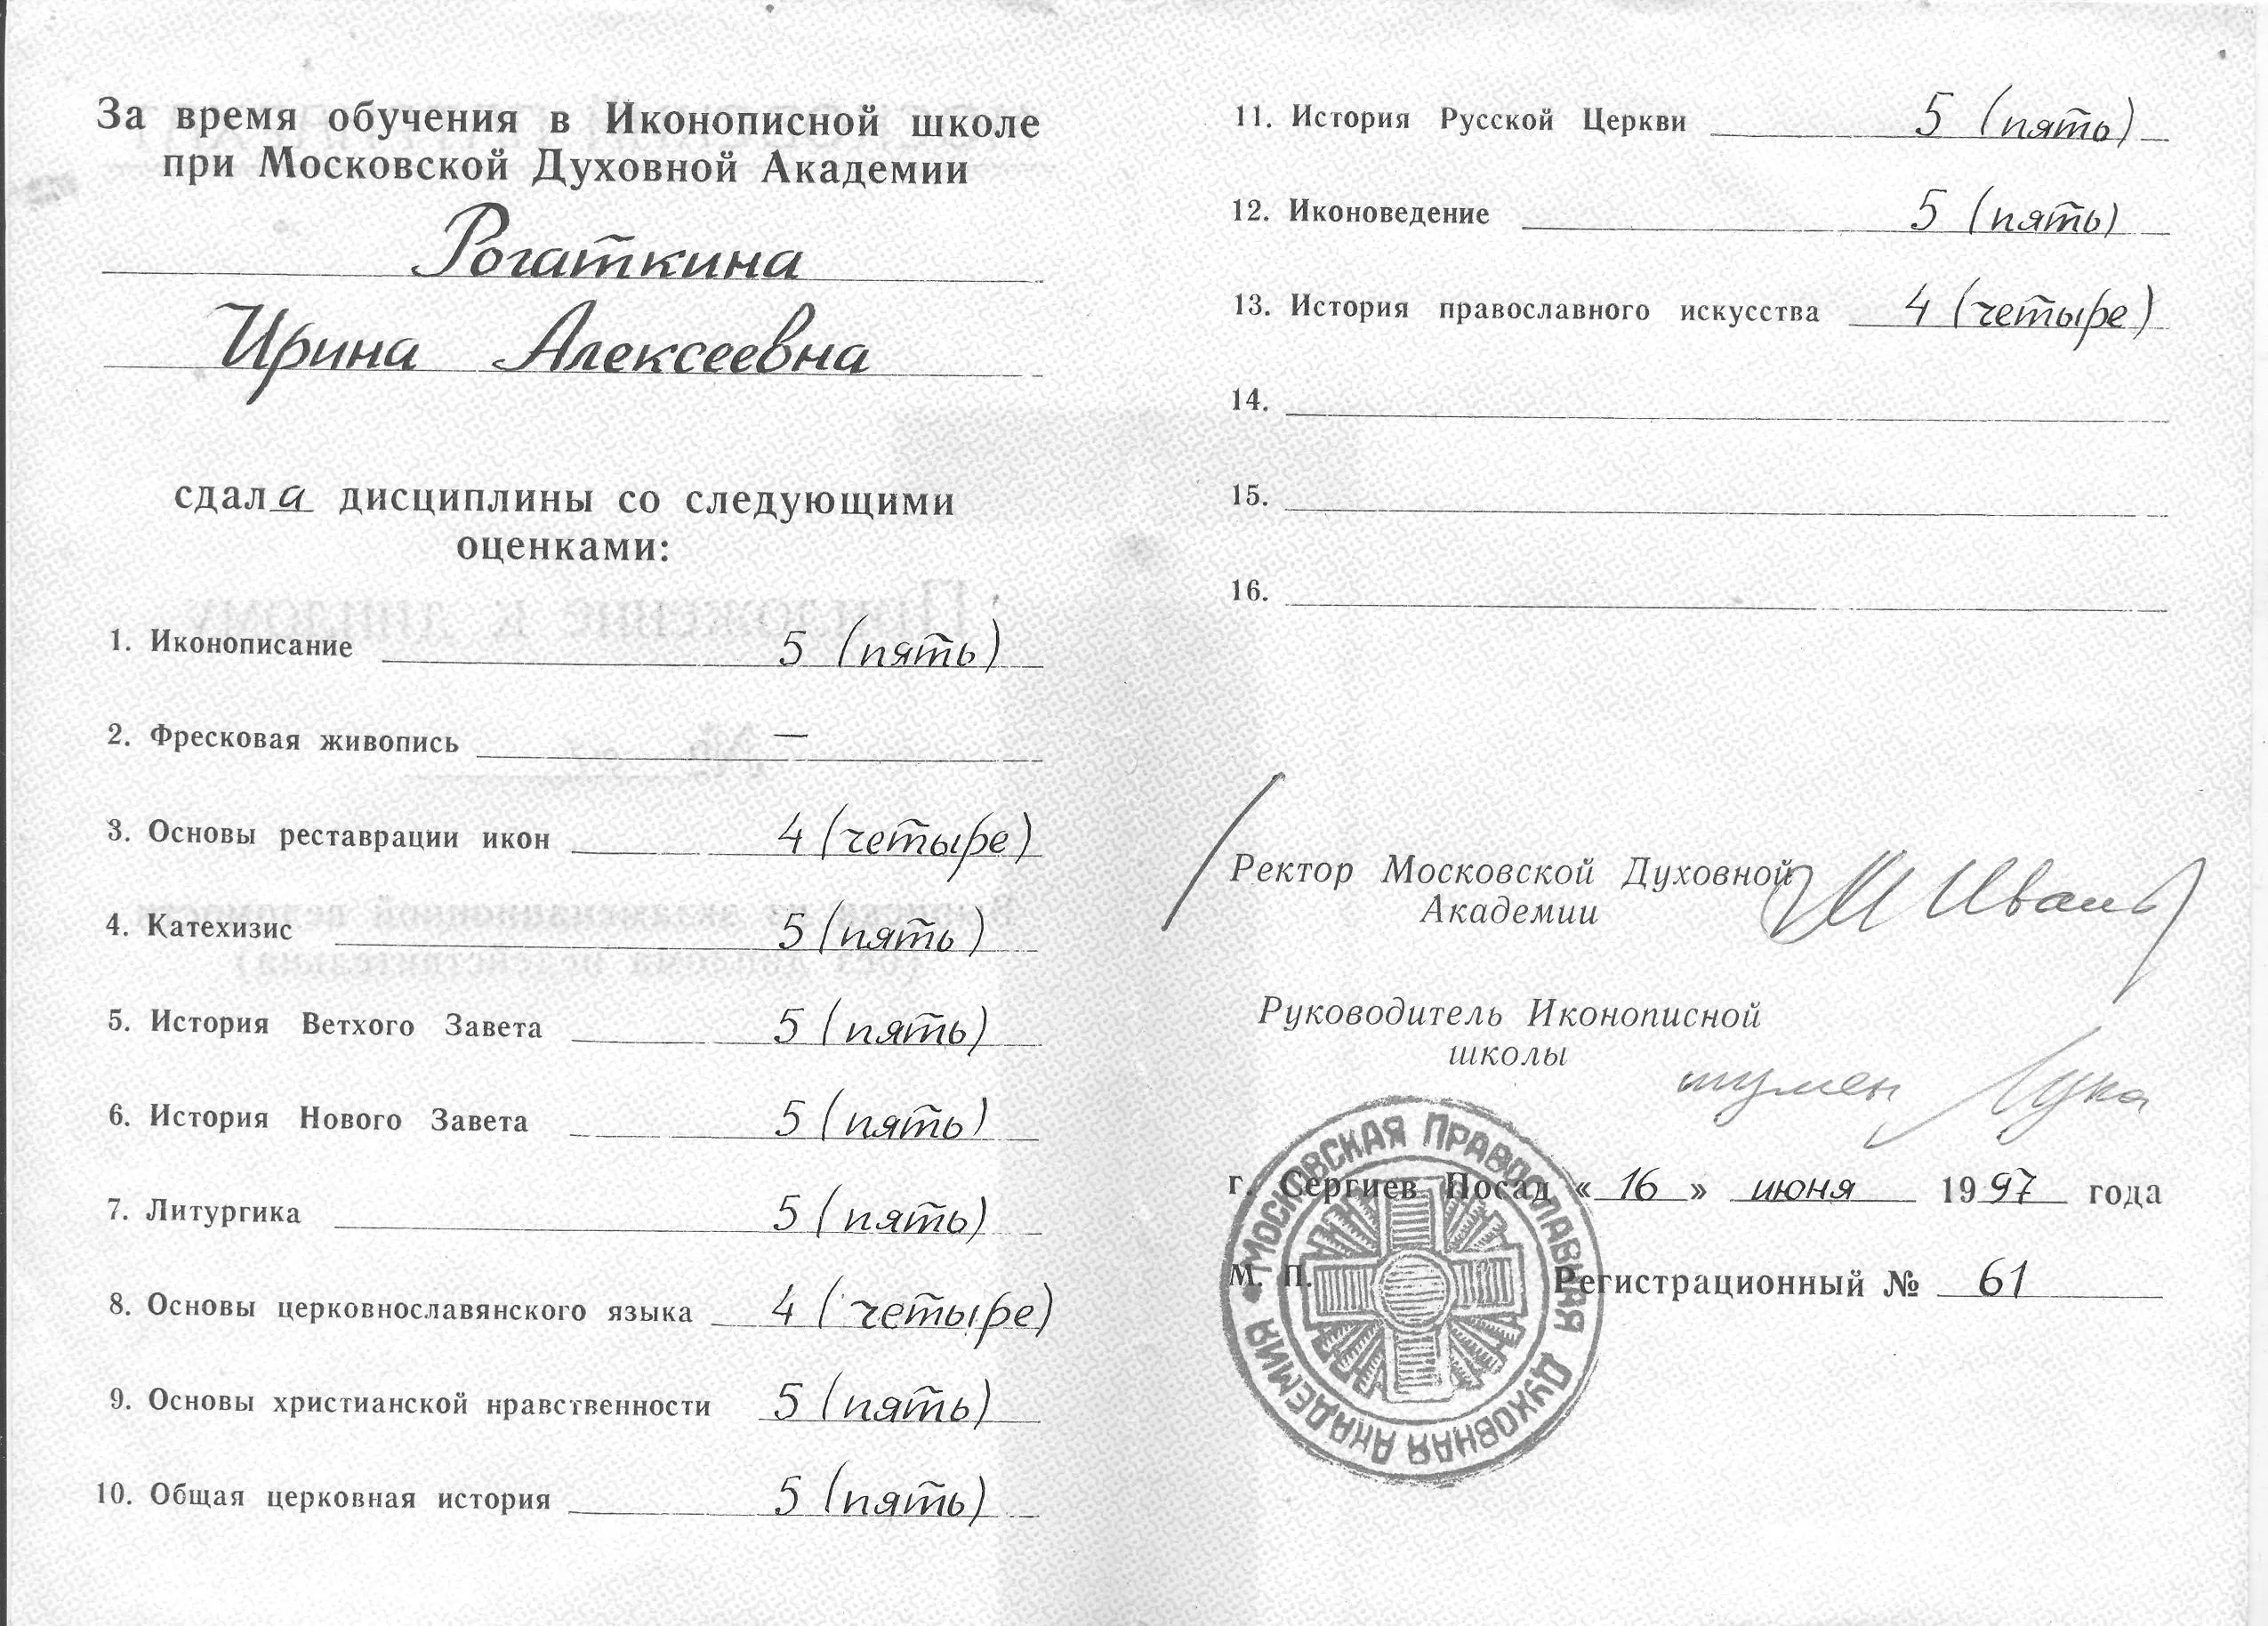 За время обучения в Иконописной школе
при Московской Духовной Академии
Рогаткина
Ирина Алексеевна
сдала дисциплины со следующими
оценками:
1. Иконописание 5 (пять)
2. Фресковая живопись —
3. Основы реставрации икон 4 (четыре)
4. Катехизис 5 (пять)
5. История Ветхого Завета 5 (пять)
6. История Нового Завета 5 (пять)
7. Литургика 5 (пять)
8. Основы церковнославянского языка 4 (четыре)
9. Основы христианской нравственности 5 (пять)
10. Общая церковная история 5 (пять)
11. История Русской Церкви 5 (пять)
12. Иконоведение 5 (пять)
13. История православного искусства 4 (четыре)
14.
15.
16.
Ректор Московской Духовной
Академии
Руководитель Иконописной
школы
игумен Лука
г. Сергиев Посад « 16 » июня 1997 года
М. П. Регистрационный № 61
МОСКОВСКАЯ ПРАВОСЛАВНАЯ ДУХОВНАЯ АКАДЕМИЯ